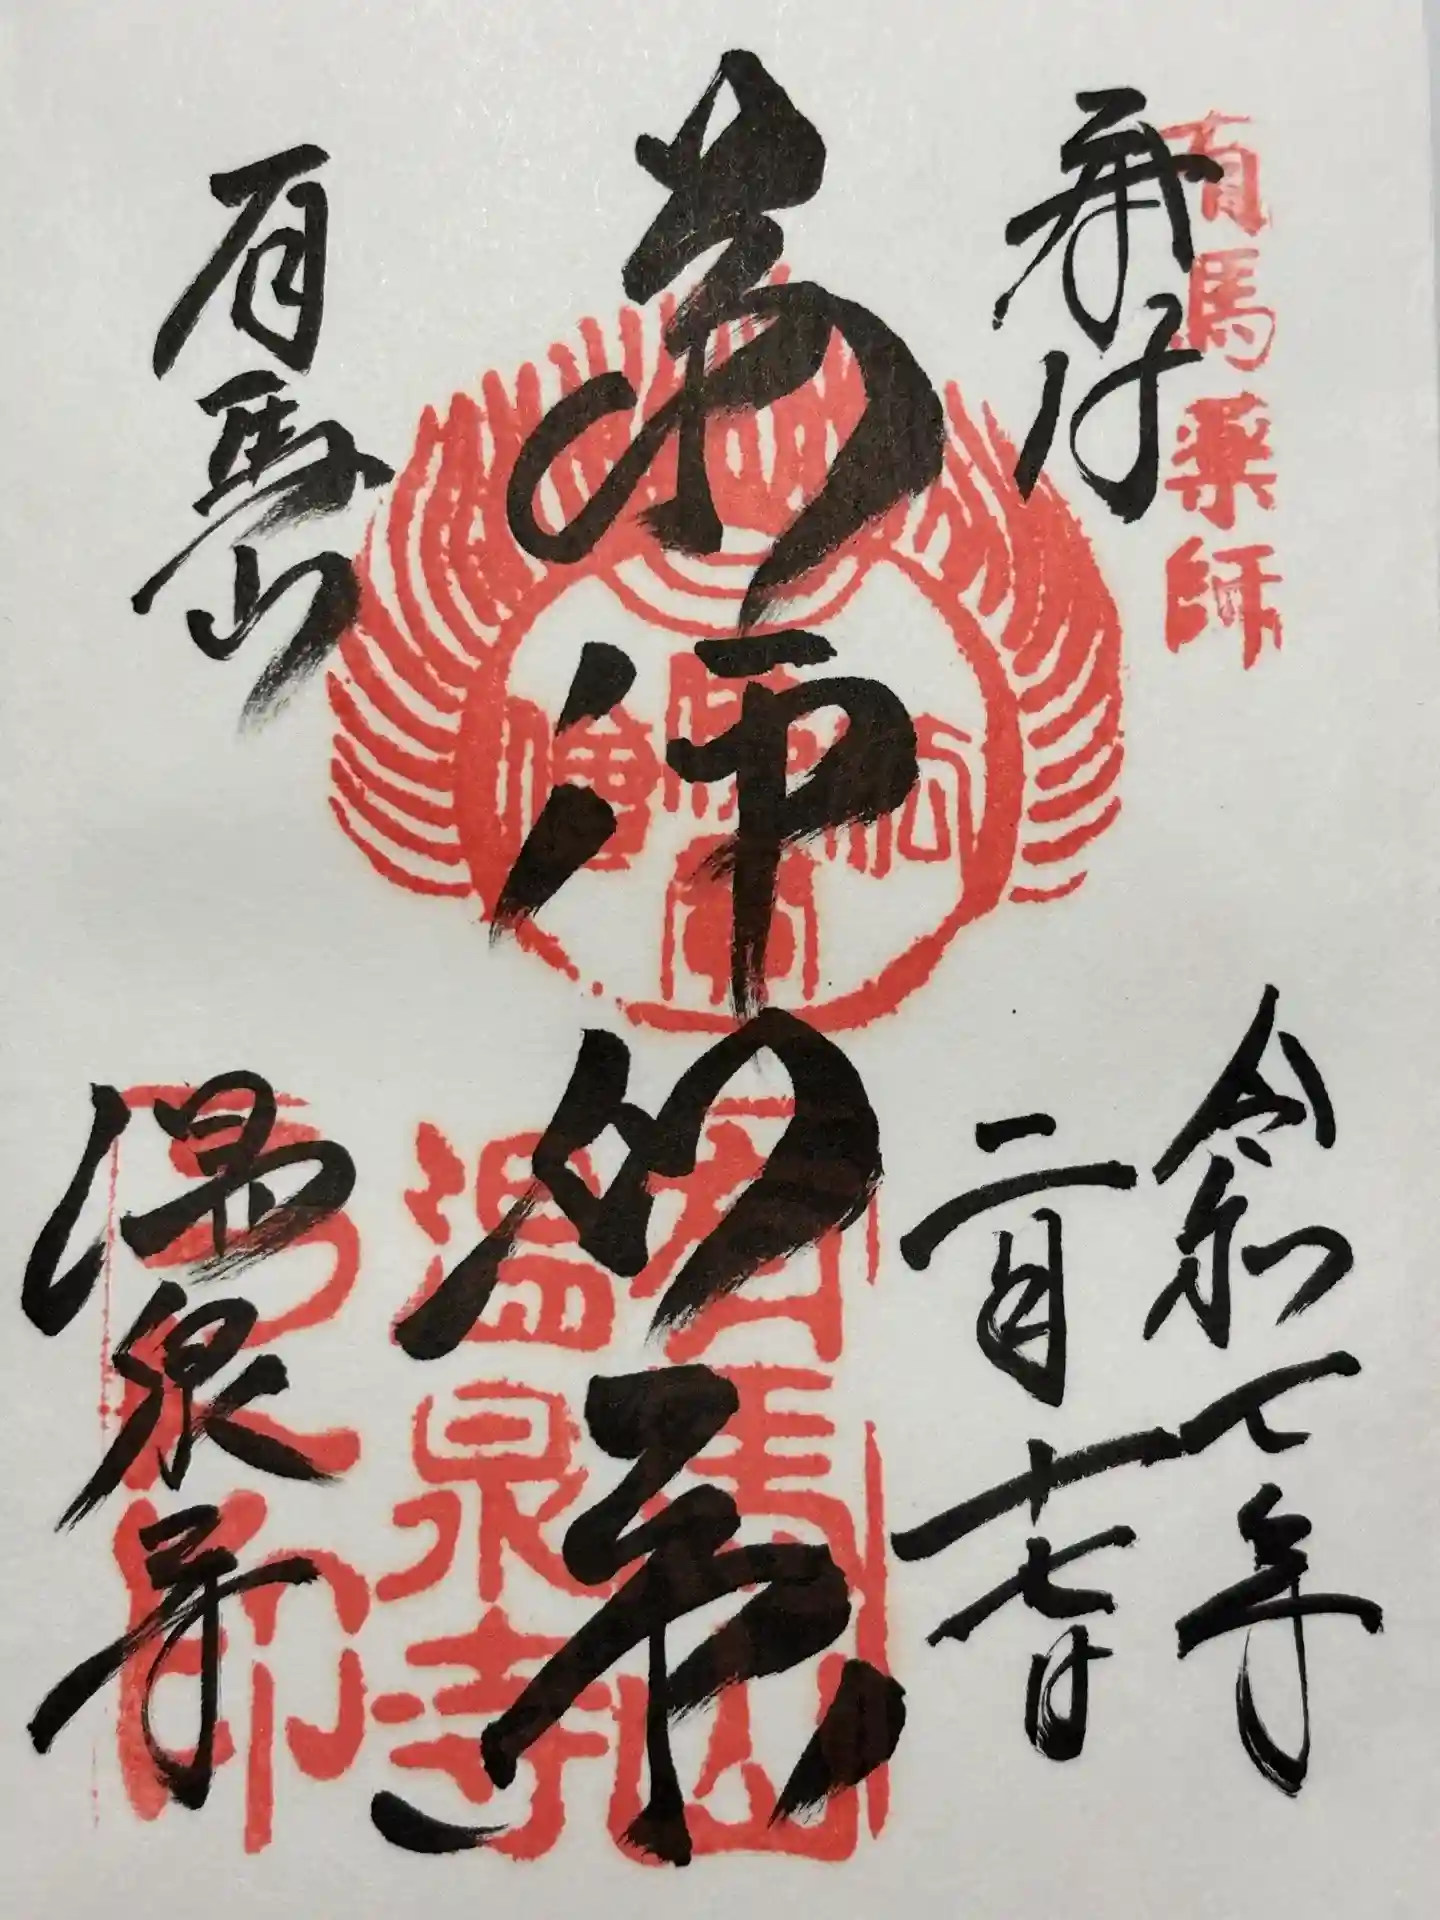 有馬薬師
奉拝
令和七年
二月十七日
薬師如来
有馬山
温泉寺
有馬山
温泉寺